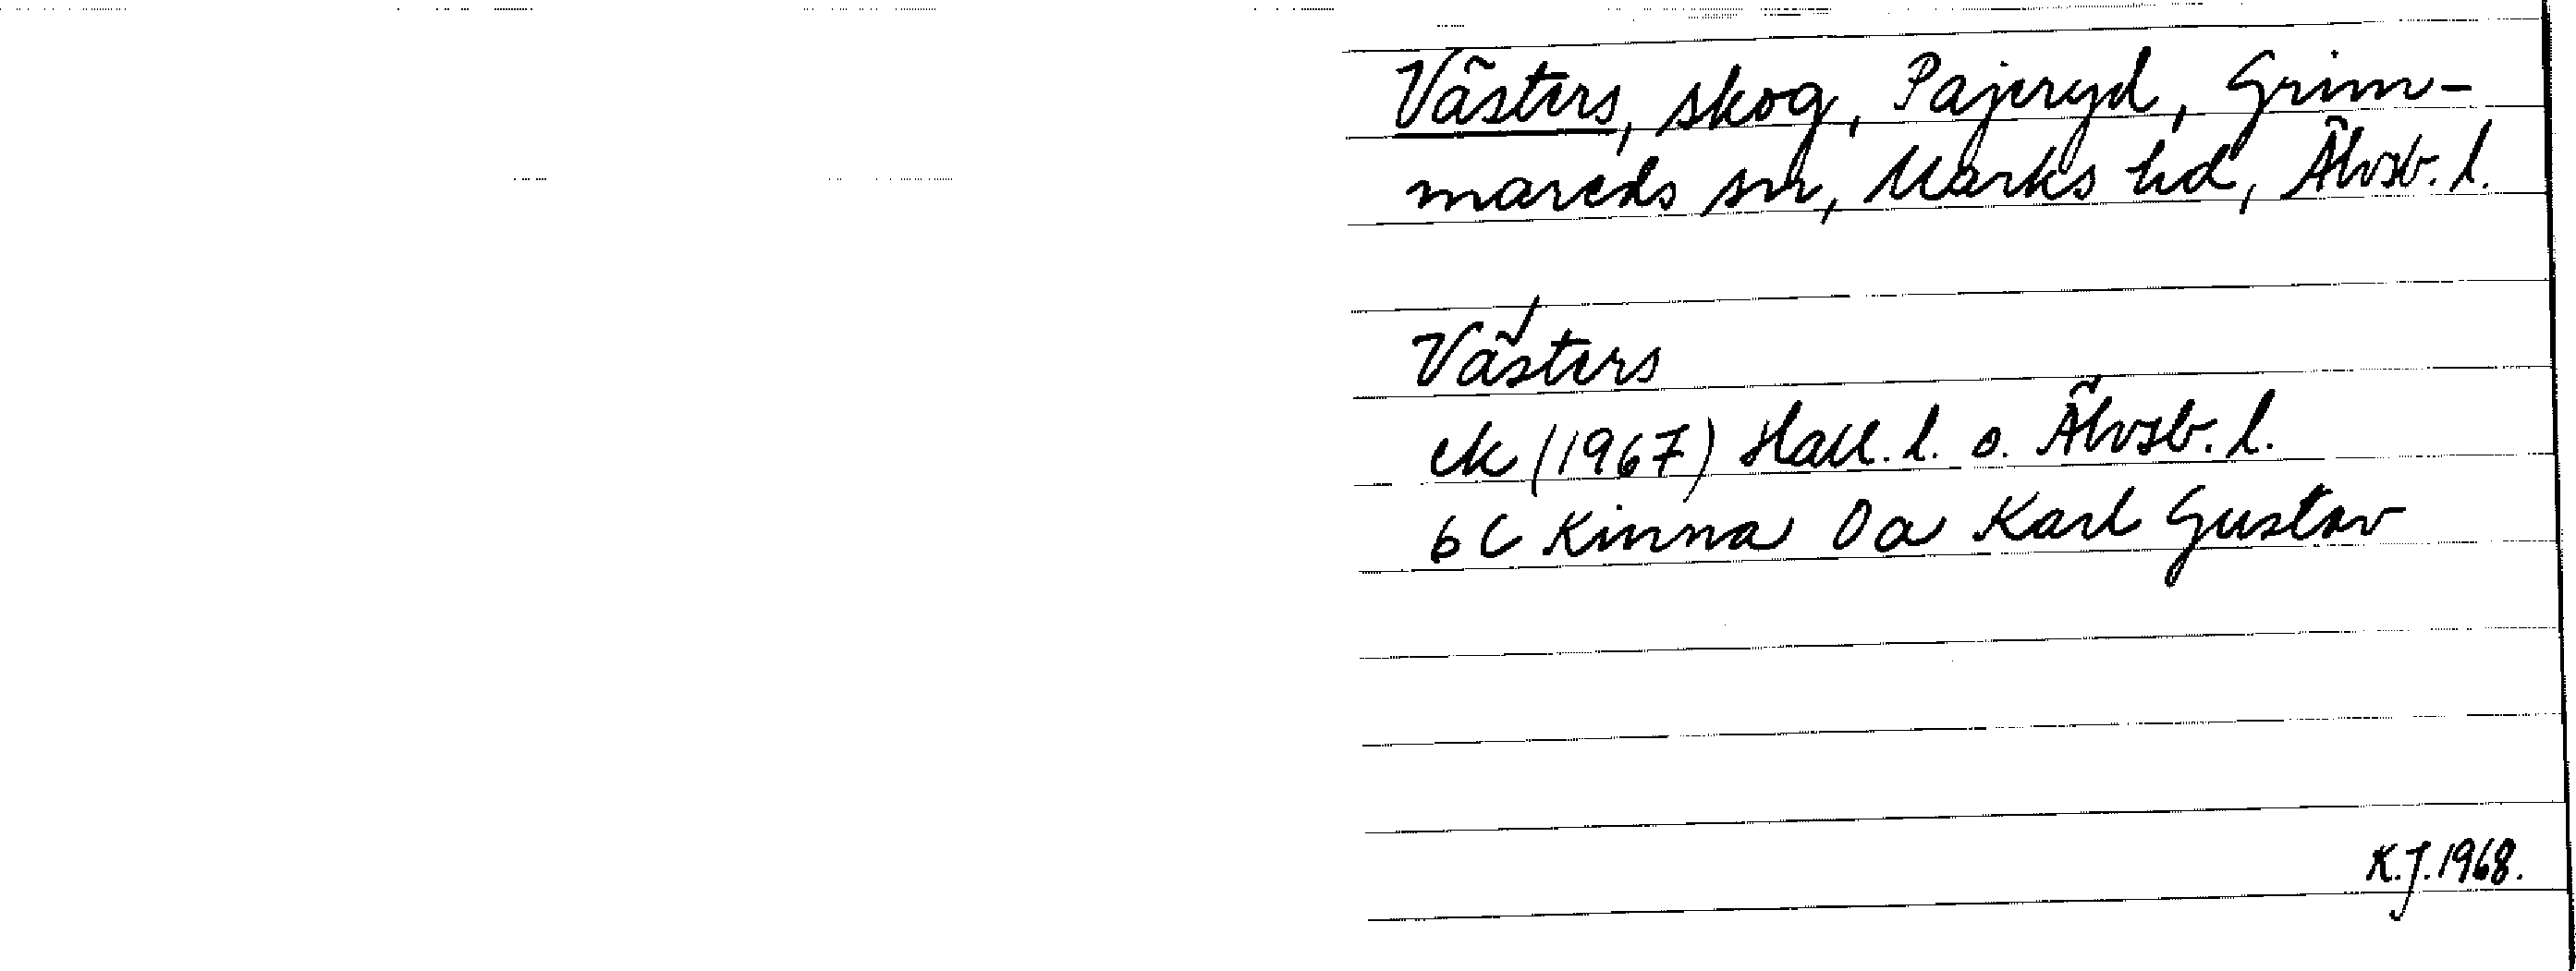 Västers, skog, Pajeryd, Grim-
mareds sn, Marks hd, Älvsb. l.
Västers
ek (1967) Hall. l. o. Älvsb. l.
6 C Kinna 0 a Karl Gustav
K.J. 1968.